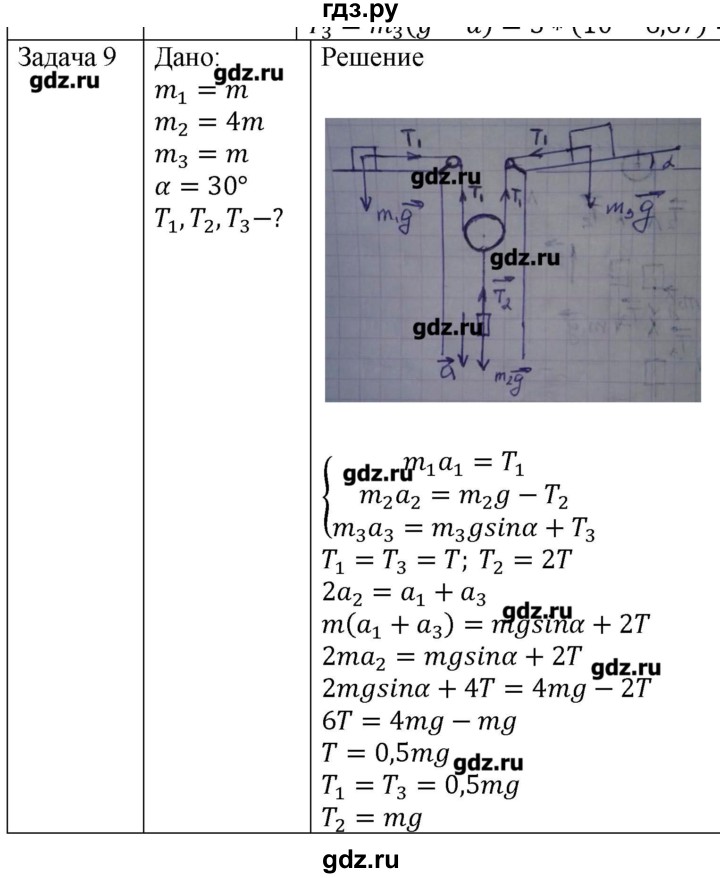 гдз.ру
T₃ = m₃(g − a) = 3 * (10 − 6,67)
Задача 9
gdz.ru
Дано:
gdz.ru
m₁ = m
m₂ = 4m
m₃ = m
α = 30°
T₁, T₂, T₃−?
Решение
T₁ T₁
gdz.ru
α
T₁ T₁
m₁g⃗ m₃g⃗
gdz.ru
T⃗₂
gdz.ru
a⃗ m₂g⃗
m₁a₁ = T₁
gdz.ru
m₂a₂ = m₂g − T₂
m₃a₃ = m₃gsinα + T₃
T₁ = T₃ = T; T₂ = 2T
2a₂ = a₁ + a₃
gdz.ru
m(a₁ + a₃) = mgsinα + 2T
2ma₂ = mgsinα + 2T
gdz.ru
2mgsinα + 4T = 4mg − 2T
6T = 4mg − mg
T = 0,5mg
gdz.ru
T₁ = T₃ = 0,5mg
T₂ = mg
gdz.ru